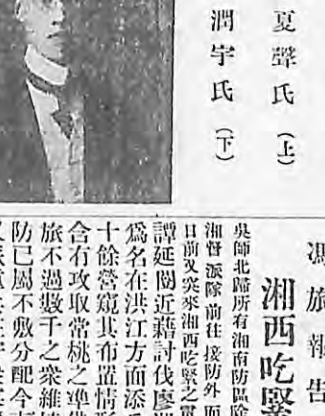 夏聲氏（上）
潤宇氏（下）
馮旅報告
湘西吃緊
吳師北歸所有湘南防區
湘督派隊前往接防外而
日前又突來湘西吃緊之電
譚延闓近藉討伐廖
爲名在洪江方面添
十餘營窺其布置情形
含有攻取常桃之準備
旅不過數千之衆維
防已屬不敷分配今